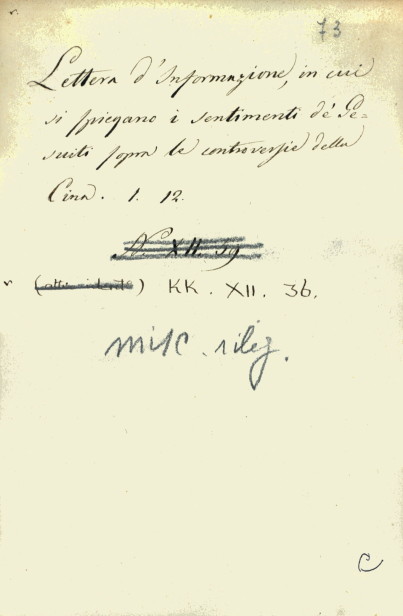 73
Lettera d'Informazione, in cui
si spiegano i sentimenti de' Ge=
suiti sopra le controversie della
Cina. 1. 12.
N. XII. 39
( ) KK. XII. 36.
misc. rileg.
C